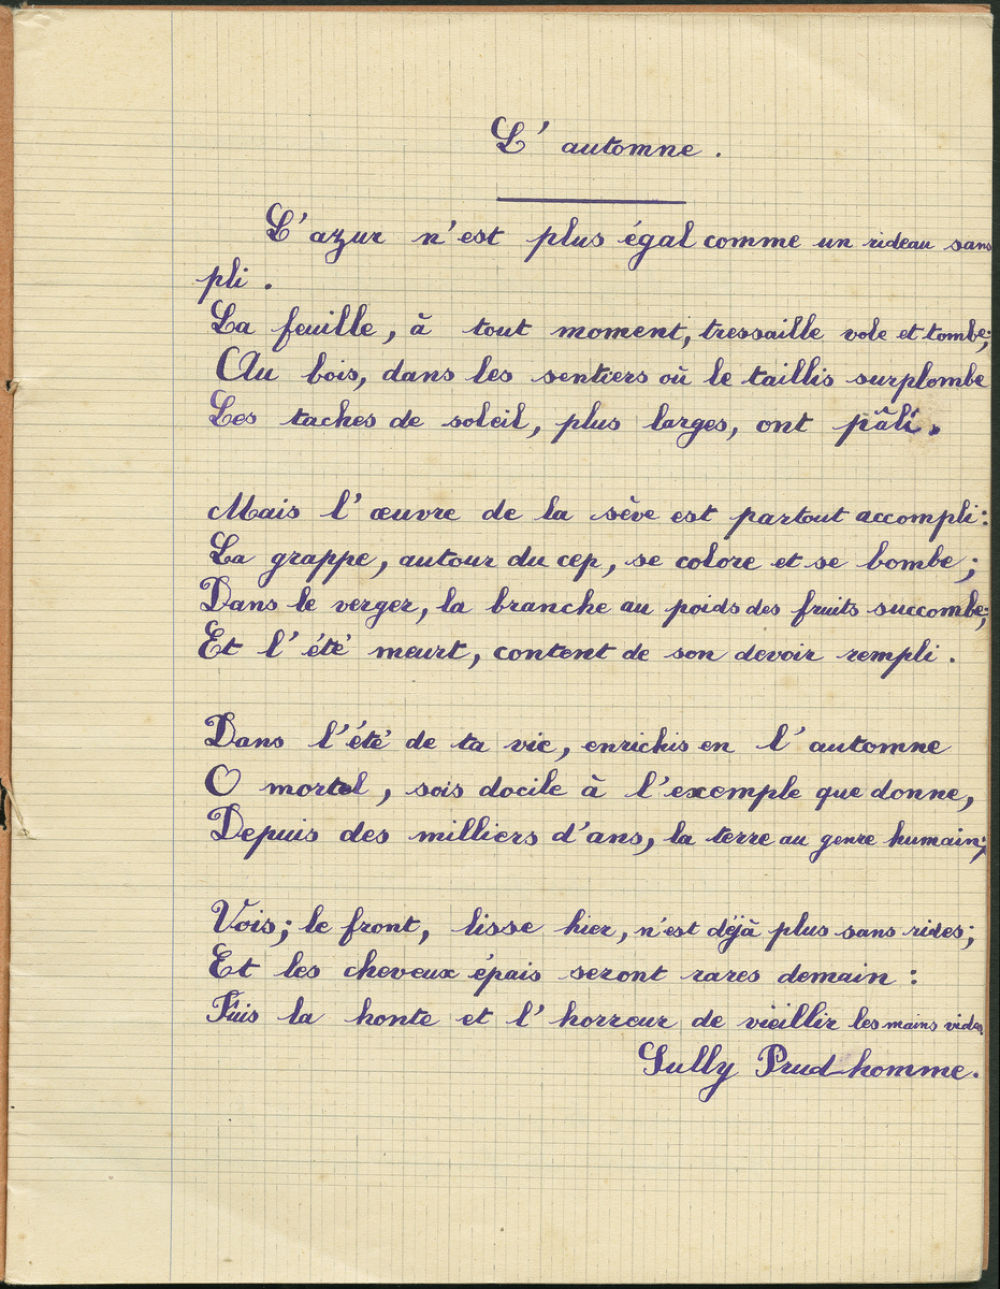 L'automne.
L'azur n'est plus égal comme un rideau sans
pli.
La feuille, à tout moment, tressaille vole et tombe;
Au bois, dans les sentiers où le taillis surplombe
Les taches de soleil, plus larges, ont pâli.
Mais l'œuvre de la sève est partout accompli:
La grappe, autour du cep, se colore et se bombe;
Dans le verger, la branche au poids des fruits succombe;
Et l'été meurt, content de son devoir rempli.
Dans l'été de ta vie, enrichis en l'automne
O mortel, sois docile à l'exemple que donne,
Depuis des milliers d'ans, la terre au genre humain;
Vois; le front, lisse hier, n'est déjà plus sans rides;
Et les cheveux épais seront rares demain:
Fuis la honte et l'horreur de vieillir les mains vides
Sully Prudhomme.